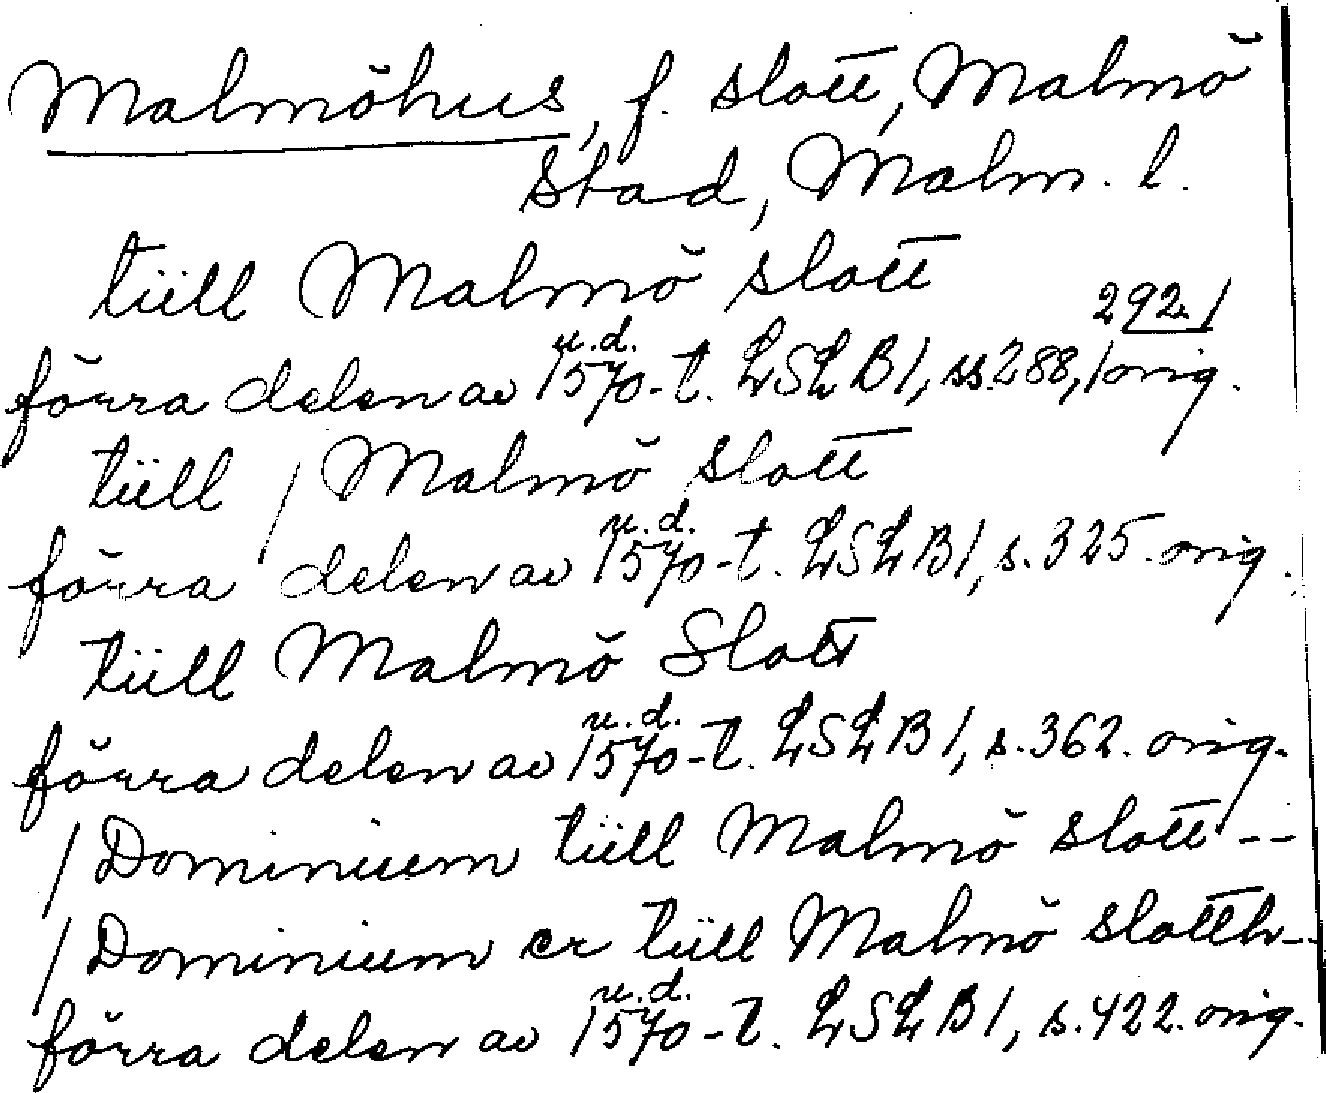 Malmöhus, f. slott, Malmö
stad, Malm. l.
tiill Malmö slott
292. /
u.d.
förra delen av 1570-t. LSLB1, ss. 288, / orig.
tiill / Malmö slott
u.d.
förra delen av 1570-t. LSLB1, s. 325. orig.
tiill Malmö Slott
u.d.
förra delen av 1570-t. LSLB1, s. 362. orig.
/ Dominium tiill Malmö slott --
/ Dominium er tiill Malmö slotth--
u.d.
förra delen av 1570-t. LSLB1, s. 422. orig.